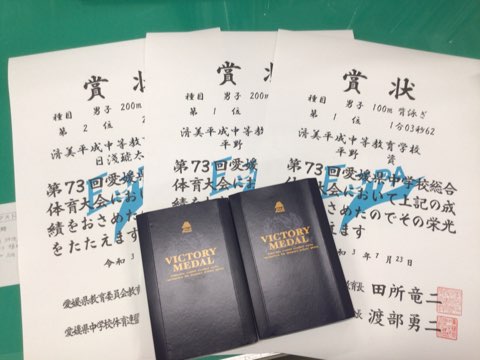 賞 状
種目 男子 200m
第 2 位
清美平成中等教育
第73回愛媛
体育大会にお
績をおさめた
をたたえます
令和3
愛媛県教育委員会教育
愛媛県中学校体育連盟
賞
種目 男子 200m
第 1 位
清美平成中等教
平野
第73回愛媛
体育大会
賞 状
種目 男子 100m 背泳ぎ
第 1 位 1分03秒62
清美平成中等教育学校
平野 資
愛媛県中学校総合
において上記の成
さめたのでその栄光
えます
3 年 7 月 23 日
田所竜二
渡部勇二
VICTORY
MEDAL
VICTORY
MEDAL